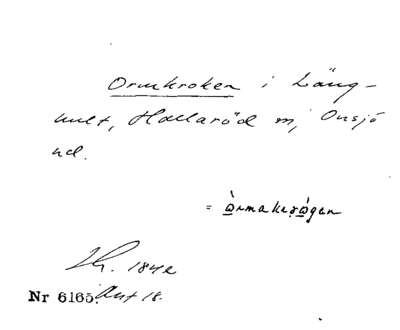 Ormkroken i Läng-
hult, Hallaröd m, Onsjö
hd.
= òrmakṛágen
Th. 1842
Nr 6165. Ant 18.